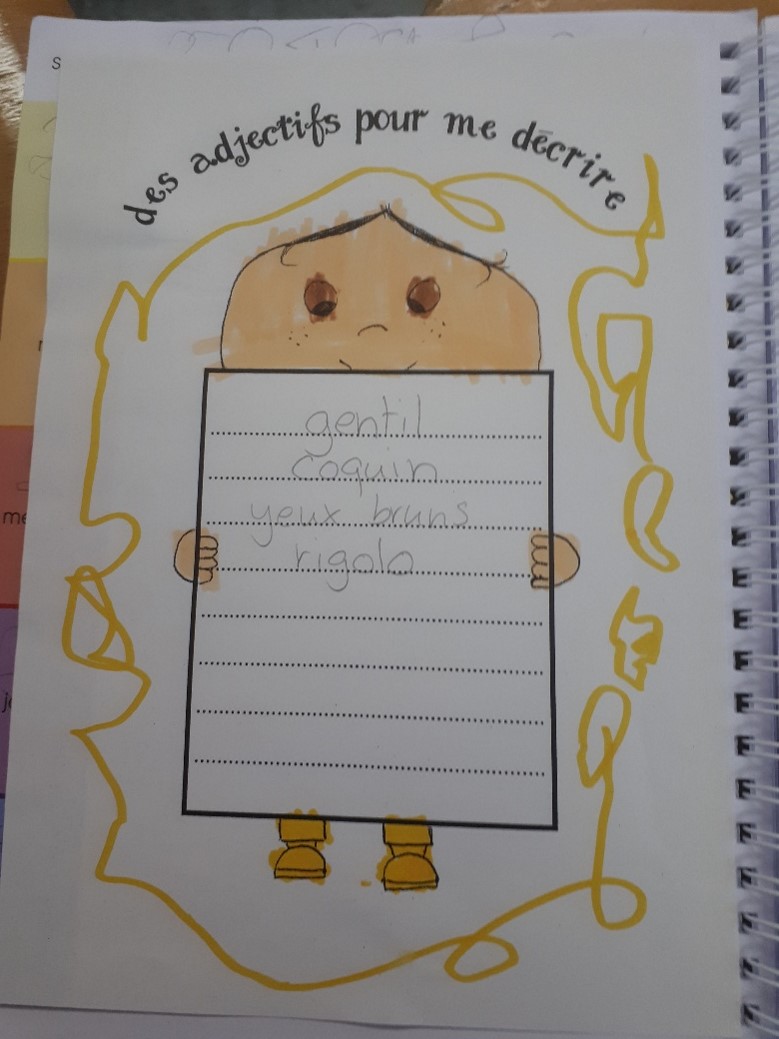 des adjectifs pour me décrire
gentil
coquin
yeux bruns
rigolo